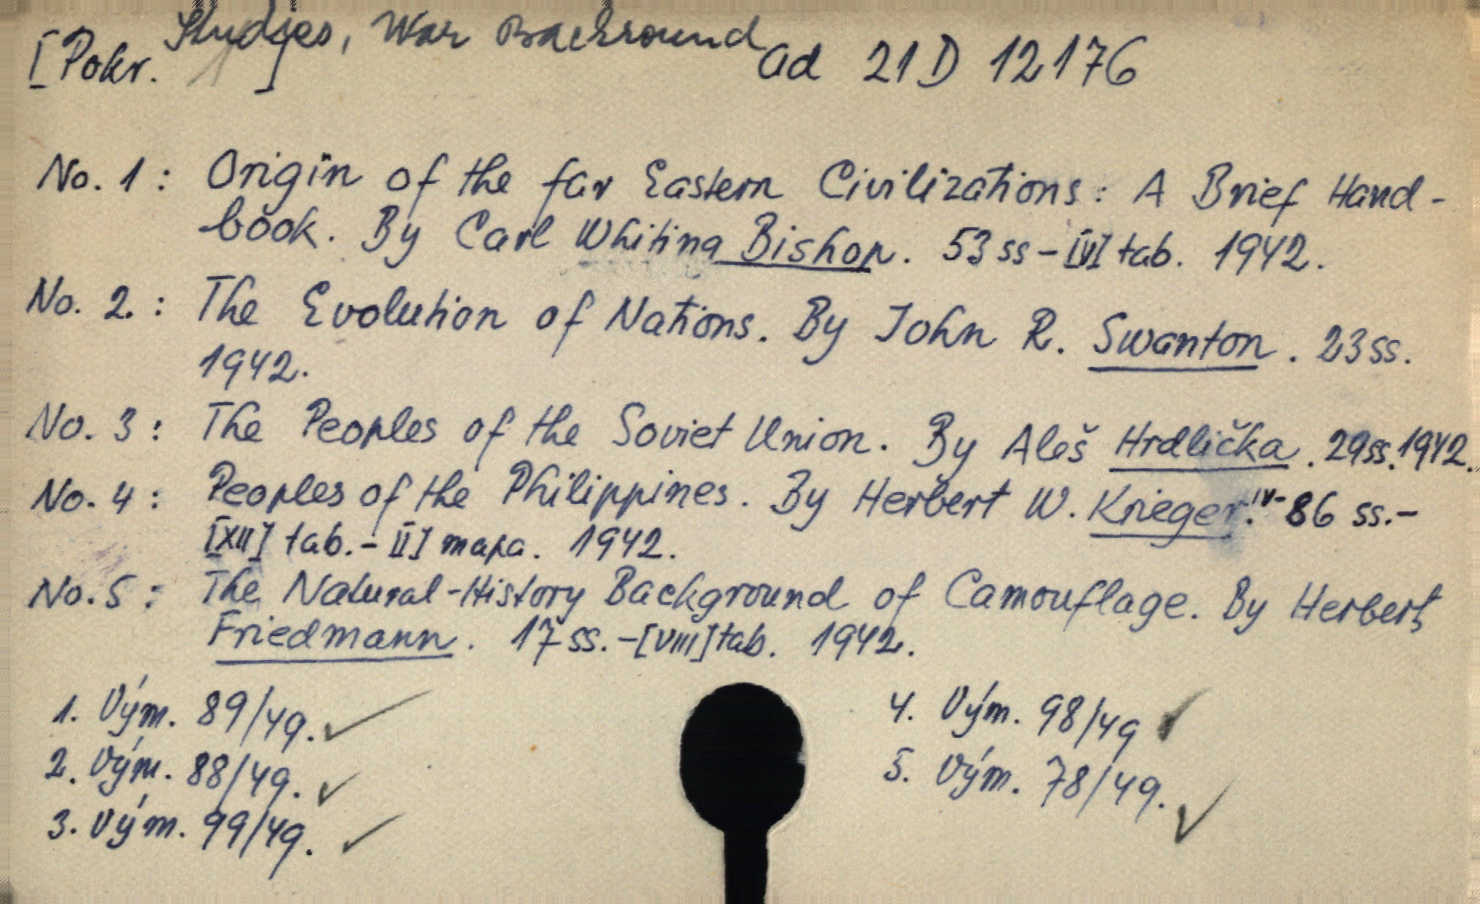 Studjes, War Backround
[Pokr. 1] ad 21 D 12176
No. 1: Origin of the far Eastern Civilizations: A Brief Hand-
book. By Carl Whiting Bishop. 53 ss - [VI] tab. 1942.
No. 2.: The Evolution of Nations. By John R. Swanton. 23 ss.
1942.
No. 3: The Peoples of the Soviet Union. By Aleš Hrdlička. 29 ss. 1942.
No. 4: Peoples of the Philippines. By Herbert W. Krieger. IV- 86 ss.-
[XII] tab. - [I] mapa. 1942.
No. 5: The Natural-History Background of Camouflage. By Herbert
Friedmann. 17 ss. - [VIII] tab. 1942.
1. Vým. 89/49. ✓
2. Vým. 88/49. ✓
3. Vým. 99/49. ✓
4. Vým. 98/49 ✓
5. Vým. 78/49. ✓